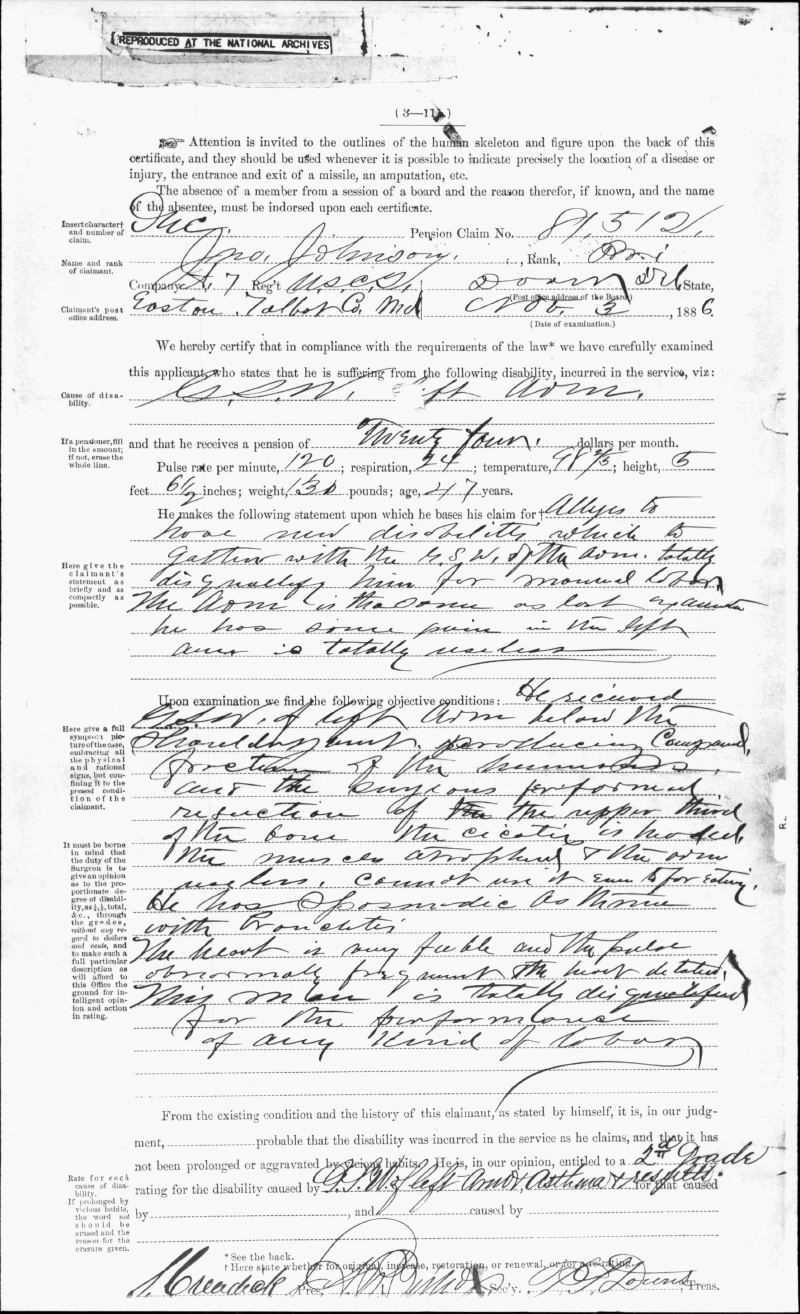 REPRODUCED AT THE NATIONAL ARCHIVES
(3—111)
Attention is invited to the outlines of the human skeleton and figure upon the back of this
certificate, and they should be used whenever it is possible to indicate precisely the location of a disease or
injury, the entrance and exit of a missile, an amputation, etc.
The absence of a member from a session of a board and the reason therefor, if known, and the name
of the absentee, must be indorsed upon each certificate.
Insert character†
and number of
claim.
Inc. Pension Claim No. 81,512,
Name and rank
of claimant.
Jno. Johnson. , Rank, Pri
Company A. 7 Reg't U.S.C.T., Dover Del State,
(Post office address of the Board.)
Claimant's post
office address.
Easton. Talbot Co. Md Nov. 3, 1886.
(Date of examination.)
We hereby certify that in compliance with the requirements of the law* we have carefully examined
this applicant, who states that he is suffering from the following disability, incurred in the service, viz:
Cause of disa-
bility.
G.S.W. left Arm.
If a pensioner, fill
in the amount;
if not, erase the
whole line.
and that he receives a pension of Twenty four. dollars per month.
Pulse rate per minute, 120; respiration, 24; temperature, 98 2/5; height, 5
feet 6 1/2 inches; weight, 130 pounds; age, 47 years.
He makes the following statement upon which he bases his claim for† Alleges to
have new disability which to
gather with the G.S.W. of the arm. totally
Here give the
claimant's
statement as
briefly and as
compactly as
possible.
disqualify him for manual labor
The Arm is the same as last
he has some pain in the left
arm is totally useless
Upon examination we find the following objective conditions: He received
Here give a full
symptom pic-
ture of the case,
embracing all
the physical
and rational
signs, but con-
fining it to the
present condi-
tion of the
claimant.
G.S.W. of left Arm below the
Shoulder joint. producing Compound,
fracture of the humerus.
and the surgeons performed
resection of the the upper third
of the bone the cicatrix is healed,
It must be borne
in mind that
the duty of the
Surgeon is to
give an opinion
as to the pro-
portionate de-
gree of disabil-
ity, as ¼, ½, total,
&c., through
the grades,
without any re-
gard to dollars
and cents, and
to make such a
full particular
description as
will afford to
this Office the
ground for in-
telligent opin-
ion and action
in rating.
the muscles atrophied & the arm
useless, cannot use it even to for eating.
He has Spasmodic Asthma
with Bronchitis
The heart is very feeble and the pulse
abnormally frequent the heart dilated,
This man is totally disqualified
for the performance
of any kind of labor
From the existing condition and the history of this claimant, as stated by himself, it is, in our judg-
ment, probable that the disability was incurred in the service as he claims, and that it has
not been prolonged or aggravated by vicious habits. He is, in our opinion, entitled to a 2d Grade
Rate for each
cause of disa-
bility.
If prolonged by
vicious habits,
the word not
should be
erased and the
reason for the
erasure given.
rating for the disability caused by G.S.W. of left Arm, Asthma & for that caused
by , and caused by
* See the back.
† Here state whether for original, increase, restoration, or renewal, or for a rerating.
Pres. Sec'y. Treas.